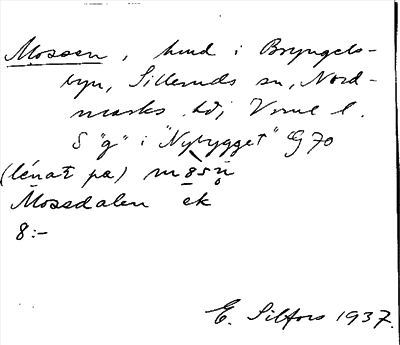 Mossen, hmd i Bryngels-
byn, Silleruds sn, Nord-
marks hd; Vrml l.
S "g" i "Nybygget" G 70
(lénat pa) m85ṇ
Mossdalen ek
8:-
E. Silfors 1937.